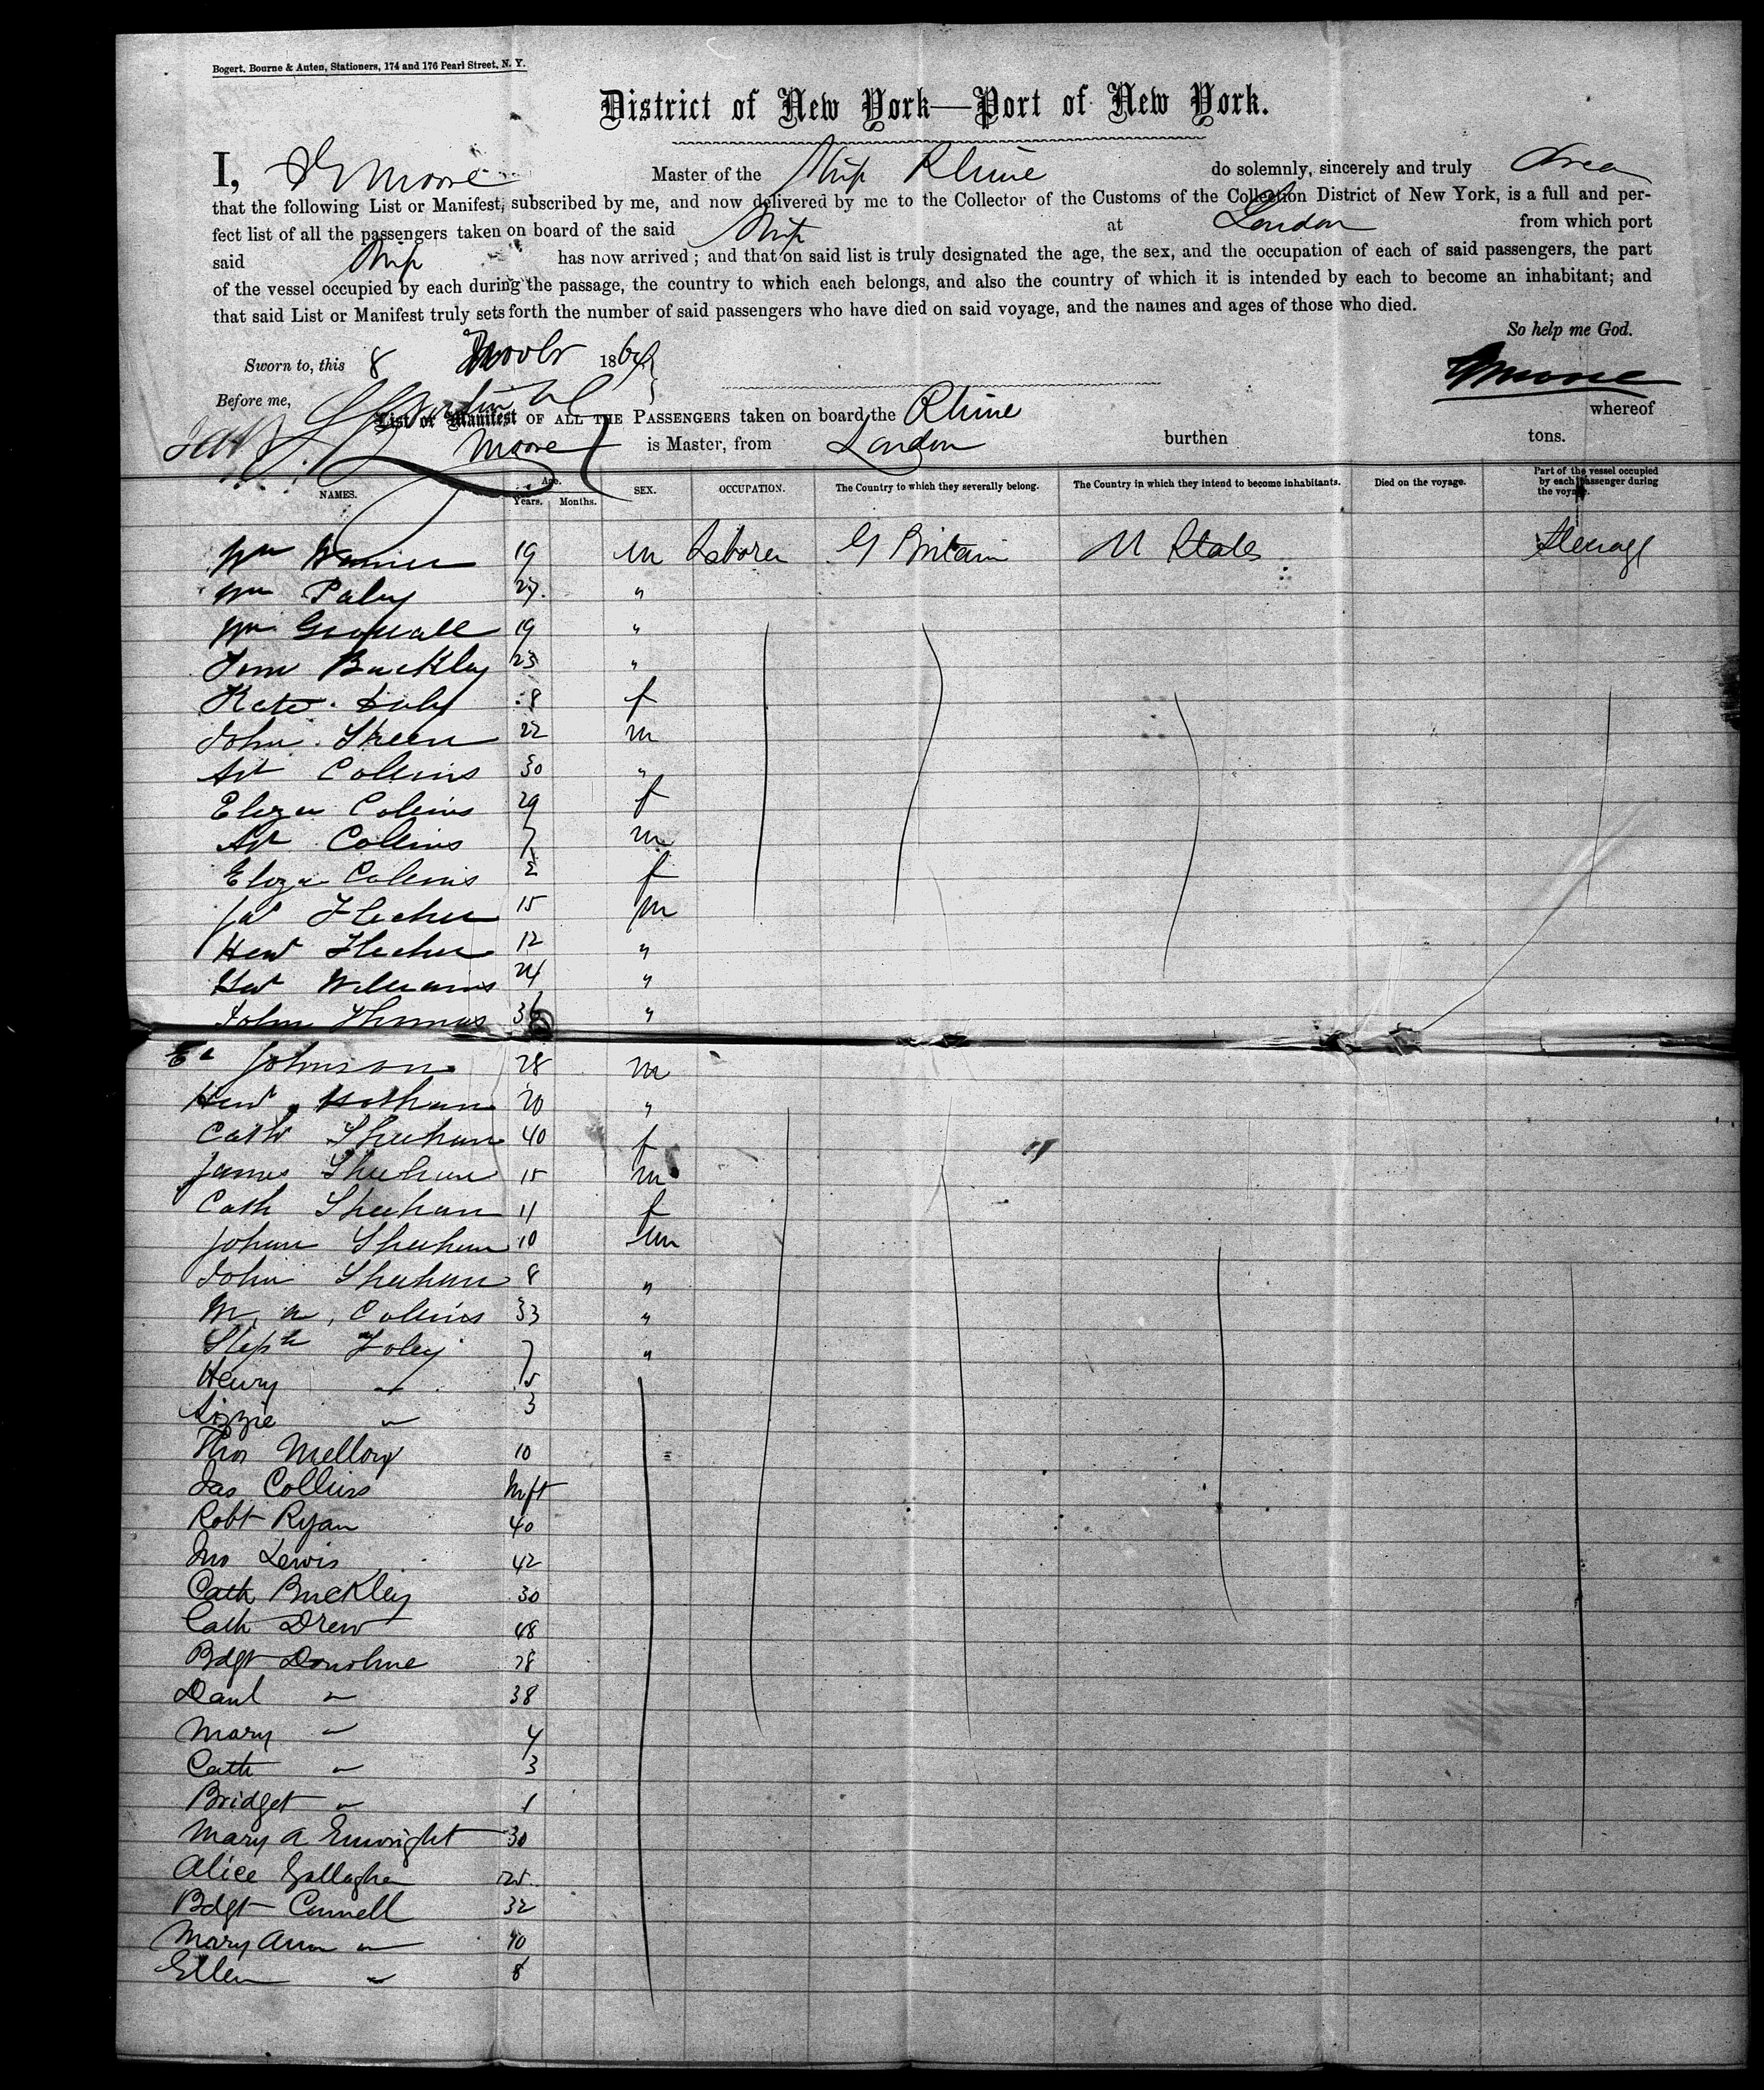 Bogert, Bourne & Auten, Stationers, 174 and 176 Pearl Street, N. Y.
District of New York—Port of New York.
I, Moore Master of the Ship Rhine do solemnly, sincerely and truly swear
that the following List or Manifest, subscribed by me, and now delivered by me to the Collector of the Customs of the Collection District of New York, is a full and per-
fect list of all the passengers taken on board of the said Ship at London from which port
said Ship has now arrived; and that on said list is truly designated the age, the sex, and the occupation of each of said passengers, the part
of the vessel occupied by each during the passage, the country to which each belongs, and also the country of which it is intended by each to become an inhabitant; and
that said List or Manifest truly sets forth the number of said passengers who have died on said voyage, and the names and ages of those who died.
So help me God.
Sworn to, this 8 Novbr 1869
Moore
Before me,
List or Manifest OF ALL THE PASSENGERS taken on board the Rhine whereof
Moore is Master, from London burthen tons.
NAMES. Age. Years. Months. SEX. OCCUPATION. The Country to which they severally belong. The Country in which they intend to become inhabitants. Died on the voyage. Part of the vessel occupied by each passenger during the voyage.
Wm 19 m Laborer G Britain U States Steerage
Wm 27 "
Wm 19 "
Buckley 23 "
Kate f
John 22 m
Art Collins 30 "
Eliza Collins 29 f
Art Collins 7 m
Eliza Collins 2 f
Jas 15 m
Hen 12 "
Williams 24 "
John Thomas 36 "
Ed Johnson 28 m
20 "
Cath Sheehan 40 f
James Sheehan 15 m
Cath Sheehan 11 f
Johan Sheehan 10 m
John Sheehan 8 "
M. A. Collins 33 "
Steph Foley 7 "
Henry " 5
Lizzie " 3
Thos Melloy 10
Jas Collins Inft
Robt Ryan 40
Jno Lewis 42
Cath Buckley 30
Cath Drew 48
Bdgt Donohue 28
Danl " 38
Mary " 4
Cath " 3
Bridget " 1
Mary A Enwright 30
Alice Gallagher 25
Bdgt Connell 32
Mary Ann " 10
Ellen " 8